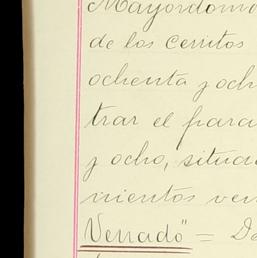 Mayordomo
de los cerritos
ochenta y och
trar el para
y ocho, situa
mientos ve
Venado" = D